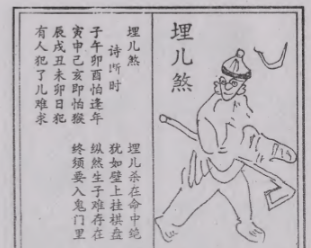 埋儿煞
埋儿煞
诗所时
子午卯酉怕逢年
寅申己亥即怕猴
辰戌丑未卯日犯
有人犯了儿难求
埋儿杀在命中绝
犹如壁上挂棋盘
纵然生子难存在
终须要入鬼门里